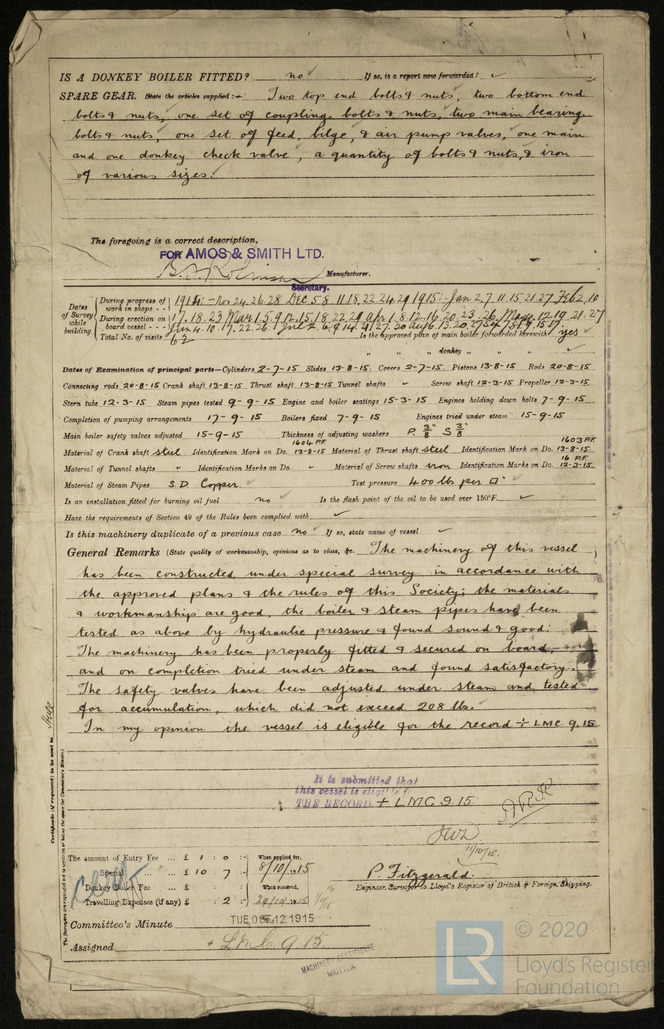 IS A DONKEY BOILER FITTED? no ✓ If so, is a report now forwarded? ✓
SPARE GEAR. State the articles supplied:— Two top end bolts & nuts, two bottom end
bolts & nuts, one set of coupling bolts & nuts, two main bearing
bolts & nuts, one set of feed, bilge, & air pump valves, one main
and one donkey check valve, a quantity of bolts & nuts, & iron
of various sizes.
The foregoing is a correct description,
FOR AMOS & SMITH LTD.
Manufacturer.
Secretary.
Dates of Survey while building
During progress of work in shops - - 1914:- Nov 24. 26. 28 Dec 5. 8. 11. 18. 22. 24. 29 1915:- Jan 2. 7. 11. 15. 21. 27 Feb 2. 10
During erection on board vessel - - - 17. 18. 23 Mar 1. 5. 9. 12. 15. 18. 22. 29 Apr 1. 8. 12. 16. 20. 23. 26. May 12. 19. 21. 27
Jun 4. 10. 17. 22. 26.
Total No. of visits 62 Is the approved plan of main boiler forwarded herewith yes ✓
" " " donkey " " ✓
Dates of Examination of principal parts—Cylinders 2-7-15 Slides 13-8-15 Covers 2-7-15 Pistons 13-8-15 Rods 20-8-15
Connecting rods 20-8-15 Crank shaft 13-8-15 Thrust shaft 13-8-15 Tunnel shafts ✓ Screw shaft 12-3-15 Propeller 12-3-15
Stern tube 12-3-15 Steam pipes tested 9-9-15 Engine and boiler seatings 15-3-15 Engines holding down bolts 7-9-15
Completion of pumping arrangements 17-9-15 Boilers fixed 7-9-15 Engines tried under steam 15-9-15
Main boiler safety valves adjusted 15-9-15 Thickness of adjusting washers P. 3/8 S 3/8
Material of Crank shaft steel Identification Mark on Do. 1604 P.F. 13-8-15 Material of Thrust shaft steel Identification Mark on Do. 1603 P.F. 13-8-15
Material of Tunnel shafts " Identification Marks on Do. " Material of Screw shafts iron Identification Marks on Do. 16 P.F. 12-3-15
Material of Steam Pipes S D Copper Test pressure 400 lbs per □"
Is an installation fitted for burning oil fuel no ✓ Is the flash point of the oil to be used over 150°F. ✓
Have the requirements of Section 49 of the Rules been complied with ✓
Is this machinery duplicate of a previous case no ✓ If so, state name of vessel ✓
General Remarks (State quality of workmanship, opinions as to class, &c. The machinery of this vessel
has been constructed under special survey in accordance with
the approved plans & the rules of this Society; the materials
& workmanship are good, the boiler & steam pipes have been
tested as above by hydraulic pressure & found sound & good.
The machinery has been properly fitted & secured on board,
and on completion tried under steam and found satisfactory.
The safety valves have been adjusted under steam and tested
for accumulation, which did not exceed 208 lbs.
In my opinion the vessel is eligible for the record + LMC 9.15
It is submitted that
this vessel is eligible for
THE RECORD + LMC 9.15
Certificate (if required) to be sent to
The amount of Entry Fee ... £ 1 : 0 : When applied for,
Special ... £ 10 : 7 : 8/10/1915
Donkey Boiler Fee ... £ : : When received,
Travelling Expenses (if any) £ : 2 :
P. Fitzgerald.
Engineer Surveyor to Lloyd's Register of British & Foreign Shipping.
Committee's Minute TUE OCT. 12. 1915
Assigned + LMC 9.15
MACHINERY CERTIFICATE
WRITTEN
LR
© 2020
Lloyd's Register
Foundation